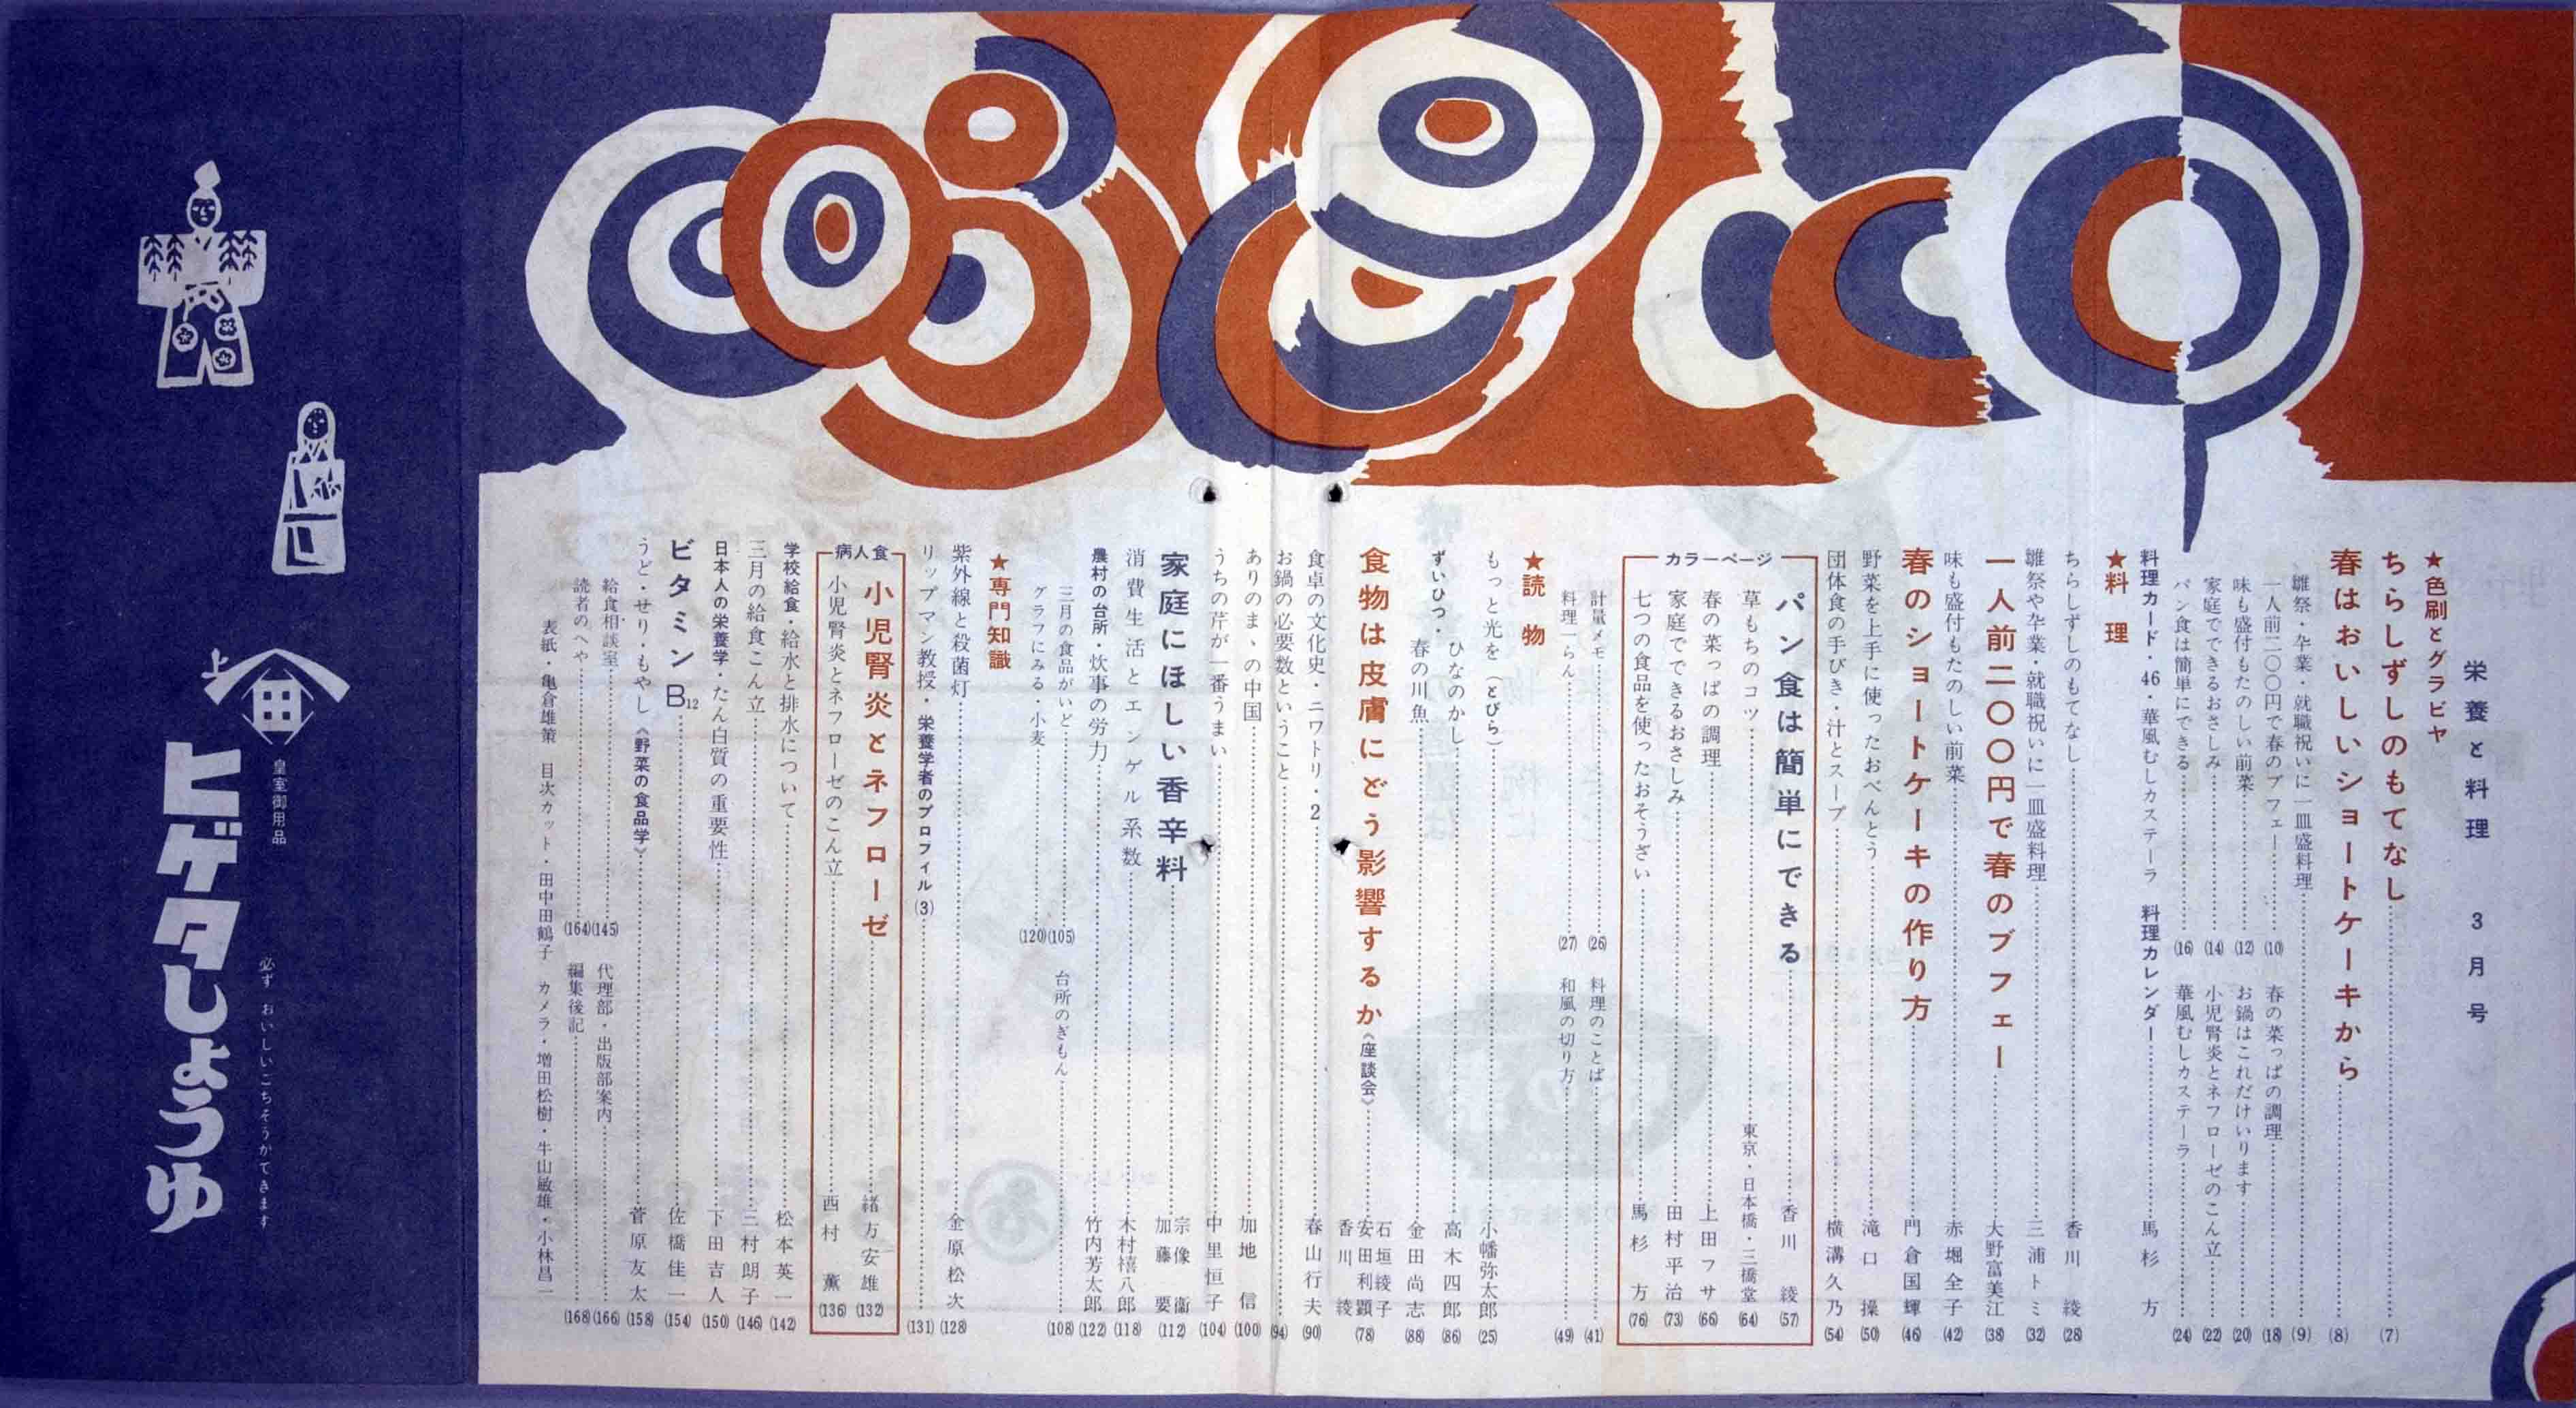 栄養と料理 3月号
★色刷とグラビヤ
ちらしずしのもてなし (7)
春はおいしいショートケーキから (8)
雛祭・卒業・就職祝いに一皿盛料理 (9)
一人前二〇〇円で春のブフェー (10)
春の菜っぱの調理 (18)
味も盛付もたのしい前菜 (12)
お鍋はこれだけいります (20)
家庭でできるおさしみ (14)
小児腎炎とネフローゼのこん立 (22)
パン食は簡単にできる (16)
華風むしカステーラ (24)
料理カード・46・華風むしカステーラ 料理カレンダー 馬杉方
★料理
ちらしずしのもてなし 香川綾 (28)
雛祭や卒業・就職祝いに一皿盛料理 三浦トミ (32)
一人前二〇〇円で春のブフェー 大野富美江 (38)
味も盛付もたのしい前菜 赤堀全子 (42)
春のショートケーキの作り方 門倉国輝 (46)
野菜を上手に使ったおべんとう 滝口操 (50)
団体食の手びき・汁とスープ 横溝久乃 (54)
カラーページ
パン食は簡単にできる 香川綾 (57)
草もちのコツ 東京・日本橋・三橋堂 (64)
春の菜っぱの調理 上田フサ (66)
家庭でできるおさしみ 田村平治 (73)
七つの食品を使ったおそうざい 馬杉方 (76)
計量メモ (26)
料理のことば (41)
料理一らん (27)
和風の切り方 (49)
★読物
もっと光を(とびら) 小幡弥太郎 (25)
ずいひつ・ひなのかし 高木四郎 (86)
春の川魚 金田尚志 (88)
食物は皮膚にどう影響するか《座談会》 石垣綾子 安田利顕 香川綾 (78)
食卓の文化史・ニワトリ・2 春山行夫 (90)
お鍋の必要数ということ (94)
ありのまゝの中国 加地信 (100)
うちの芹が一番うまい 中里恒子 (104)
家庭にほしい香辛料 宗像衞 加藤要 (112)
消費生活とエンゲル系数 木村禧八郎 (118)
農村の台所・炊事の労力 竹内芳太郎 (122)
三月の食品がいど (105)
台所のぎもん (108)
グラフにみる・小麦 (120)
★専門知識
紫外線と殺菌灯 金原松次 (128)
リップマン教授・栄養学者のプロフィル(3) (131)
病人食
小児腎炎とネフローゼ 緒方安雄 (132)
小児腎炎とネフローゼのこん立 西村薫 (136)
学校給食・給水と排水について 松本英一 (142)
三月の給食こん立 三村朗子 (146)
日本人の栄養学・たん白質の重要性 下田吉人 (150)
ビタミンB12 佐橋佳一 (154)
うど・せり・もやし《野菜の食品学》 菅原友太 (158)
給食相談室 (145)
代理部・出版部案内 (166)
読者のへや (164)
編集後記 (168)
表紙・亀倉雄策 目次カット・田中田鶴子 カメラ・増田松樹・牛山敏雄・小林昌一
上
田
皇室御用品
必ず おいしいごちそうができます
ヒゲタしょうゆ